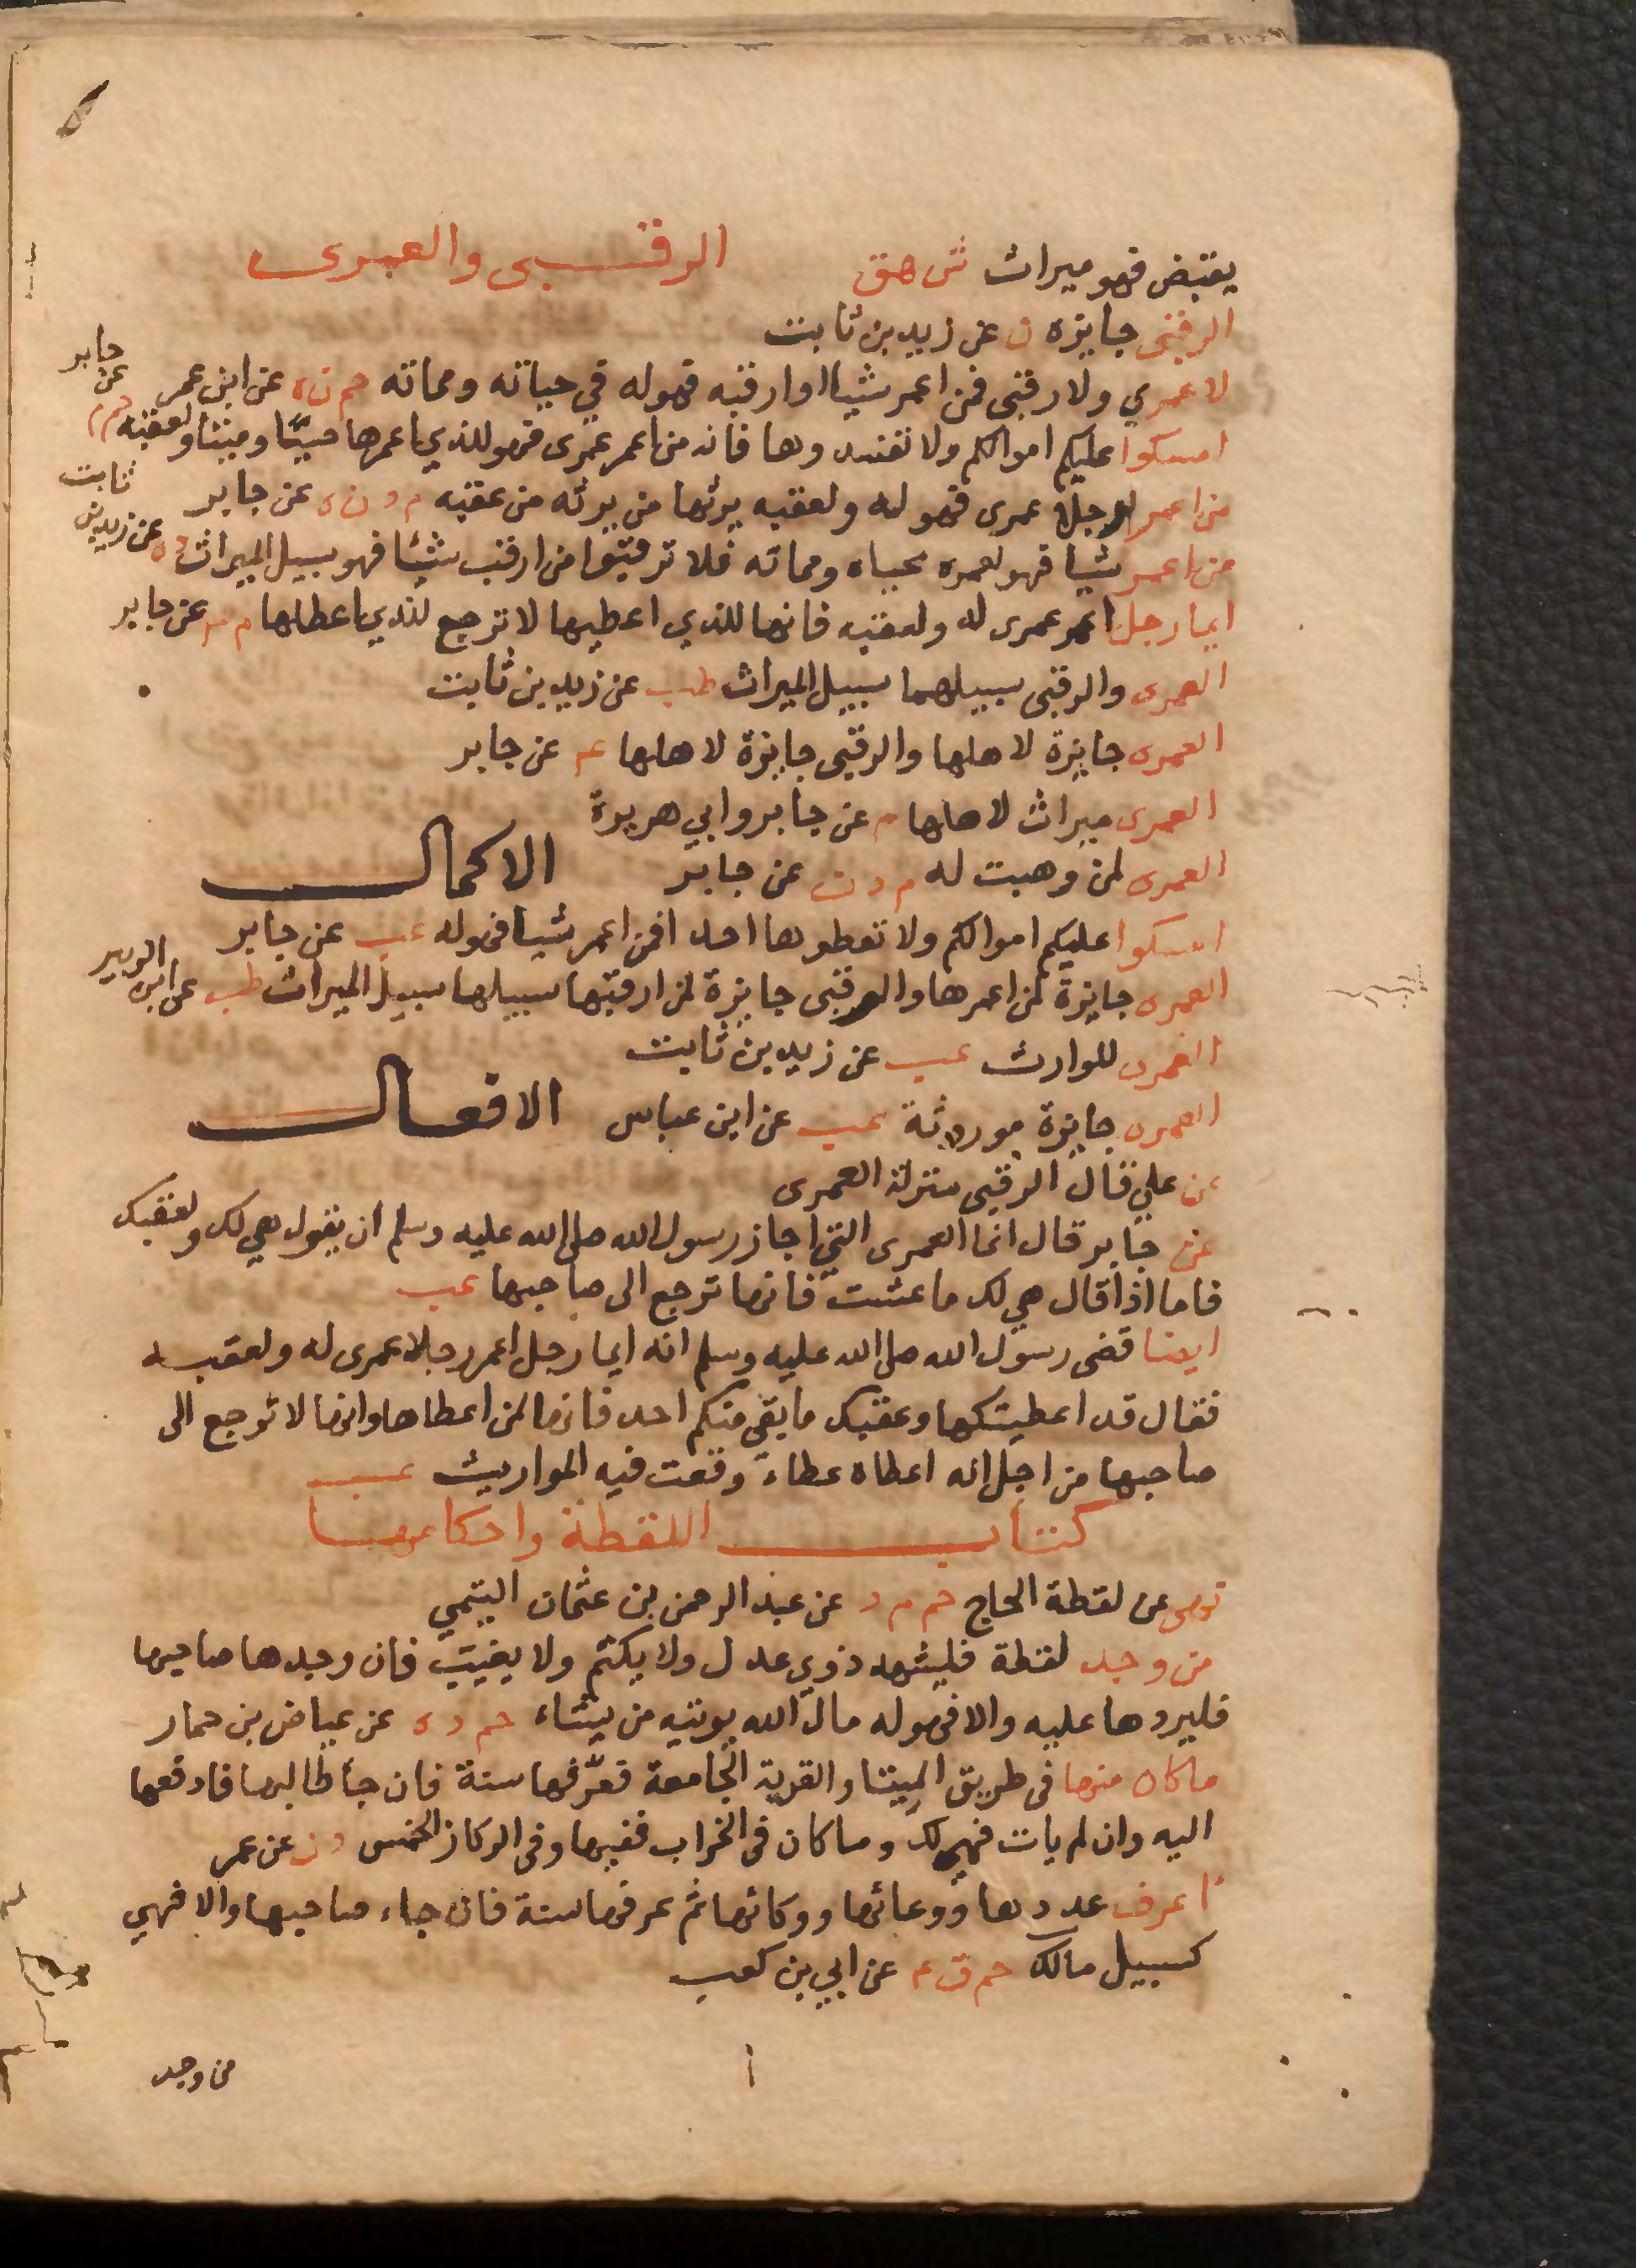 يقبض فهو ميراث ش هق الرقبى والعمرى
الرقبى جايزه ن عن زيد بن ثابت
لا عمري ولا رقبى فمن اعمر شيا او ارقبه فهو له في حياته ومماته حم ن ه عن ابن عمر
امسكوا عليكم اموالكم ولا تفسدوها فانه من اعمر عمرى فهو للذي اعمرها حييّا وميتا ولعقبه حم م عن جابر
من اعمر رجلا عمرى فهو له ولعقبه يرثها من يرثه من عقبه م د ن ه عن جابر
من اعمر شيا فهو لمعمره محياه ومماته فلا ترقبوا من ارقب شيئا فهو سبيل الميراث د ه عن زيد بن ثابت
ايما رجل اعمر عمرى له ولعقبه فانها للذي اعطيها لا ترجع للذي اعطاها م عن جابر
العمرى والرقبى سبيلهما سبيل الميراث طب عن زيد بن ثابت
العمرى جايزة لاهلها والرقبى جايزة لاهلها عم عن جابر
العمرى ميراث لاهلها م عن جابر وابي هريرة
العمرى لمن وهبت له م د ن عن جابر الاكمال
امسكوا عليكم اموالكم ولا تعطوها احدا فمن اعمر شيا فهو له عب عن جابر
العمرى جايزة لمن اعمرها والرقبى جايزة لمن ارقبها سبيلها سبيل الميراث طب عن ابن الزبير
العمرى للوارث عب عن زيد بن ثابت
العمرى جايزة موروثة عب عن ابن عباس الافعال
عن علي قال الرقبى منزلة العمرى
عن جابر قال انما العمرى التي اجاز رسول الله صلى الله عليه وسلم ان يقول هي لك ولعقبك
فاما اذا قال هي لك ما عشت فانها ترجع الى صاحبها عب
ايضا قضى رسول الله صلى الله عليه وسلم انه ايما رجل اعمر رجلا عمرى له ولعقبه
فقال قد اعطيتكها وعقبك ما بقي منكم احد فانها لمن اعطاها وانها لا ترجع الى
صاحبها من اجل انه اعطاه عطاء وقعت فيه المواريث عب
كتاب اللقطة واحكامها
نهى عن لقطة الحاج حم م د عن عبد الرحمن بن عثمان التيمي
من وجد لقطة فليشهد ذوي عدل ولا يكتم ولا يغيب فان وجدها صاحبها
فليردها عليه والا فهو له مال الله يوتيه من يشاء حم د ه عن عياض بن حمار
ما كان منها في طريق الميتا والقرية الجامعة فعرّفها سنة فان جا طالبها فادفعها
اليه وان لم يات فهي لك وما كان في الخراب ففيها وفي الركاز الخمس د ن عن عمر
اعرف عددها ووعائها ووكائها ثم عرفها سنة فان جاء صاحبها والا فهي
كسبيل مالك حم ق ٤ عن ابي بن كعب
من وجد